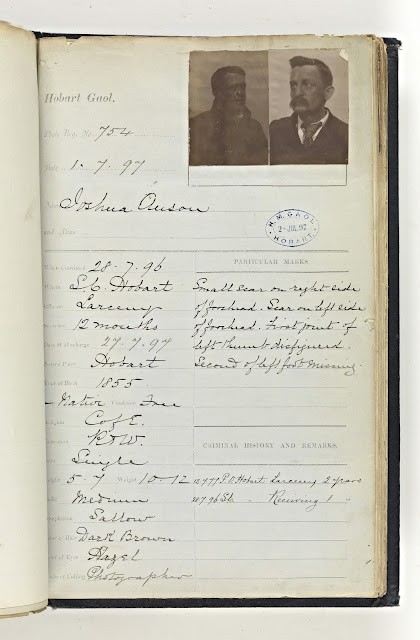 Hobart Gaol.
Photo Reg. No. 754
Date 1. 7. 97
Name Joshua Anson
and Alias
H.M. GAOL
2 - JUL. 97
HOBART
When Convicted 28. 7. 96
Where S.C. Hobart
Offence Larceny
Sentence 12 months
Date of discharge 27. 7. 97
Hobart
Year of Birth 1855
Native Condition Free
Religion C of E.
Education R & W.
State Single
Height 5-7 Weight 10.12
Build Medium
Complexion Sallow
Color of Hair Dark Brown
Color of Eyes Hazel
Trade or Calling Photographer
PARTICULAR MARKS
Small scar on right side
of forehead. Scar on left side
of forehead. First joint of
left thumb disfigured.
Second of left foot missing.
CRIMINAL HISTORY AND REMARKS.
12.7.77 P.O. Hobart Larceny 2 years
28.7.96 S.C. " Receiving 1 "